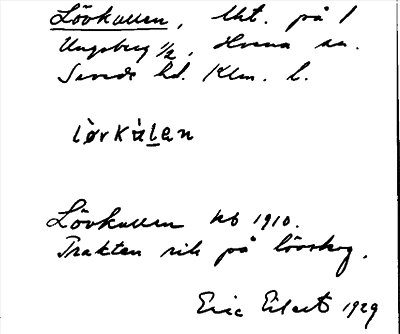 Lövkullen, lht. på 1
Ungsberg 1/2, Hvena sn.
Sevede hd. Klm. l.
lø̀rkùlan
Lövkullen kb 1910.
Trakten rik på lövskog.
Eric Eilert 1929